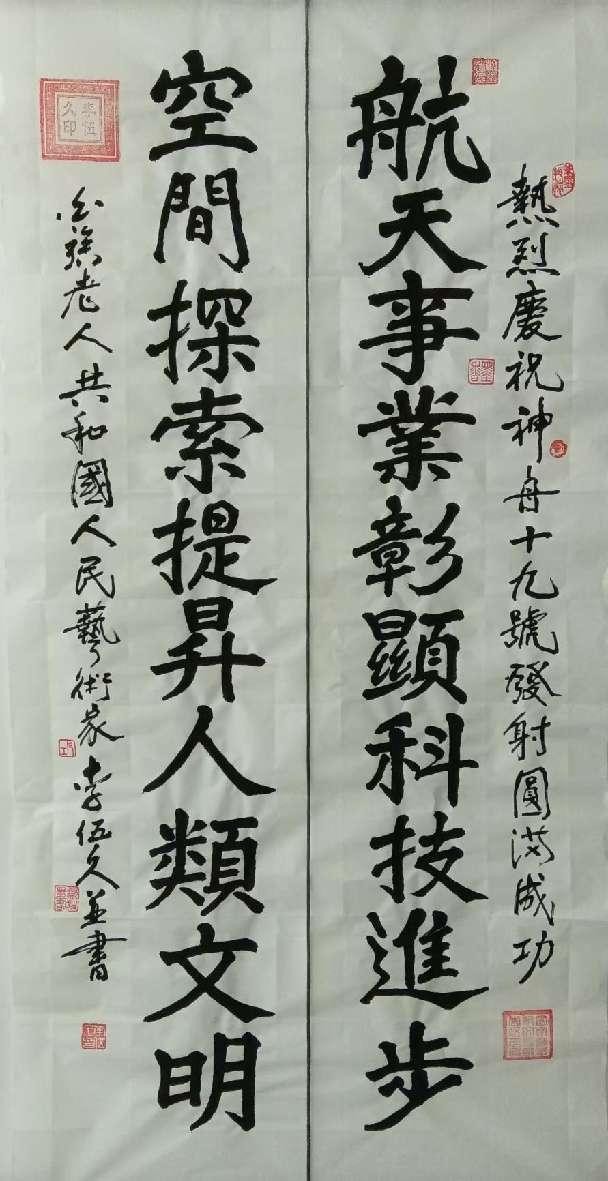 熱烈慶祝神舟十九號發射圓满成功
航天事業彰顯科技進步
空間探索提昇人類文明
老人共和國人民藝術家李伍久並書
李伍久印